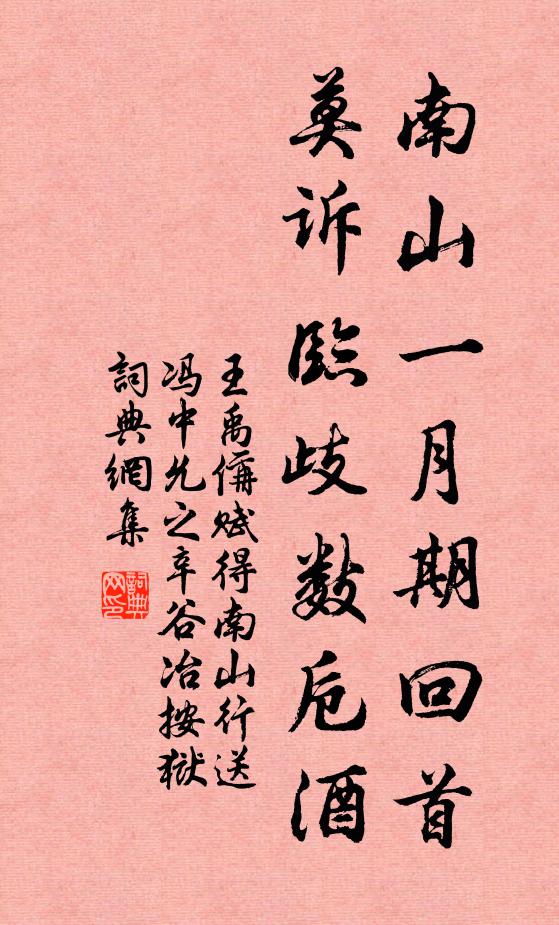 南山一月期回首
莫诉臨歧数卮酒
王禹偁赋得南山行送
冯中允之辛谷冶按獄
詞典網集
詞典网印